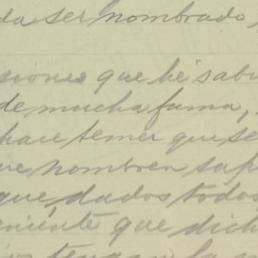 da ser nombrado,
siones que hé sabi
de mucha fama,
hace temer que se
ue nombren sap
que, dados todos
eniente que dich